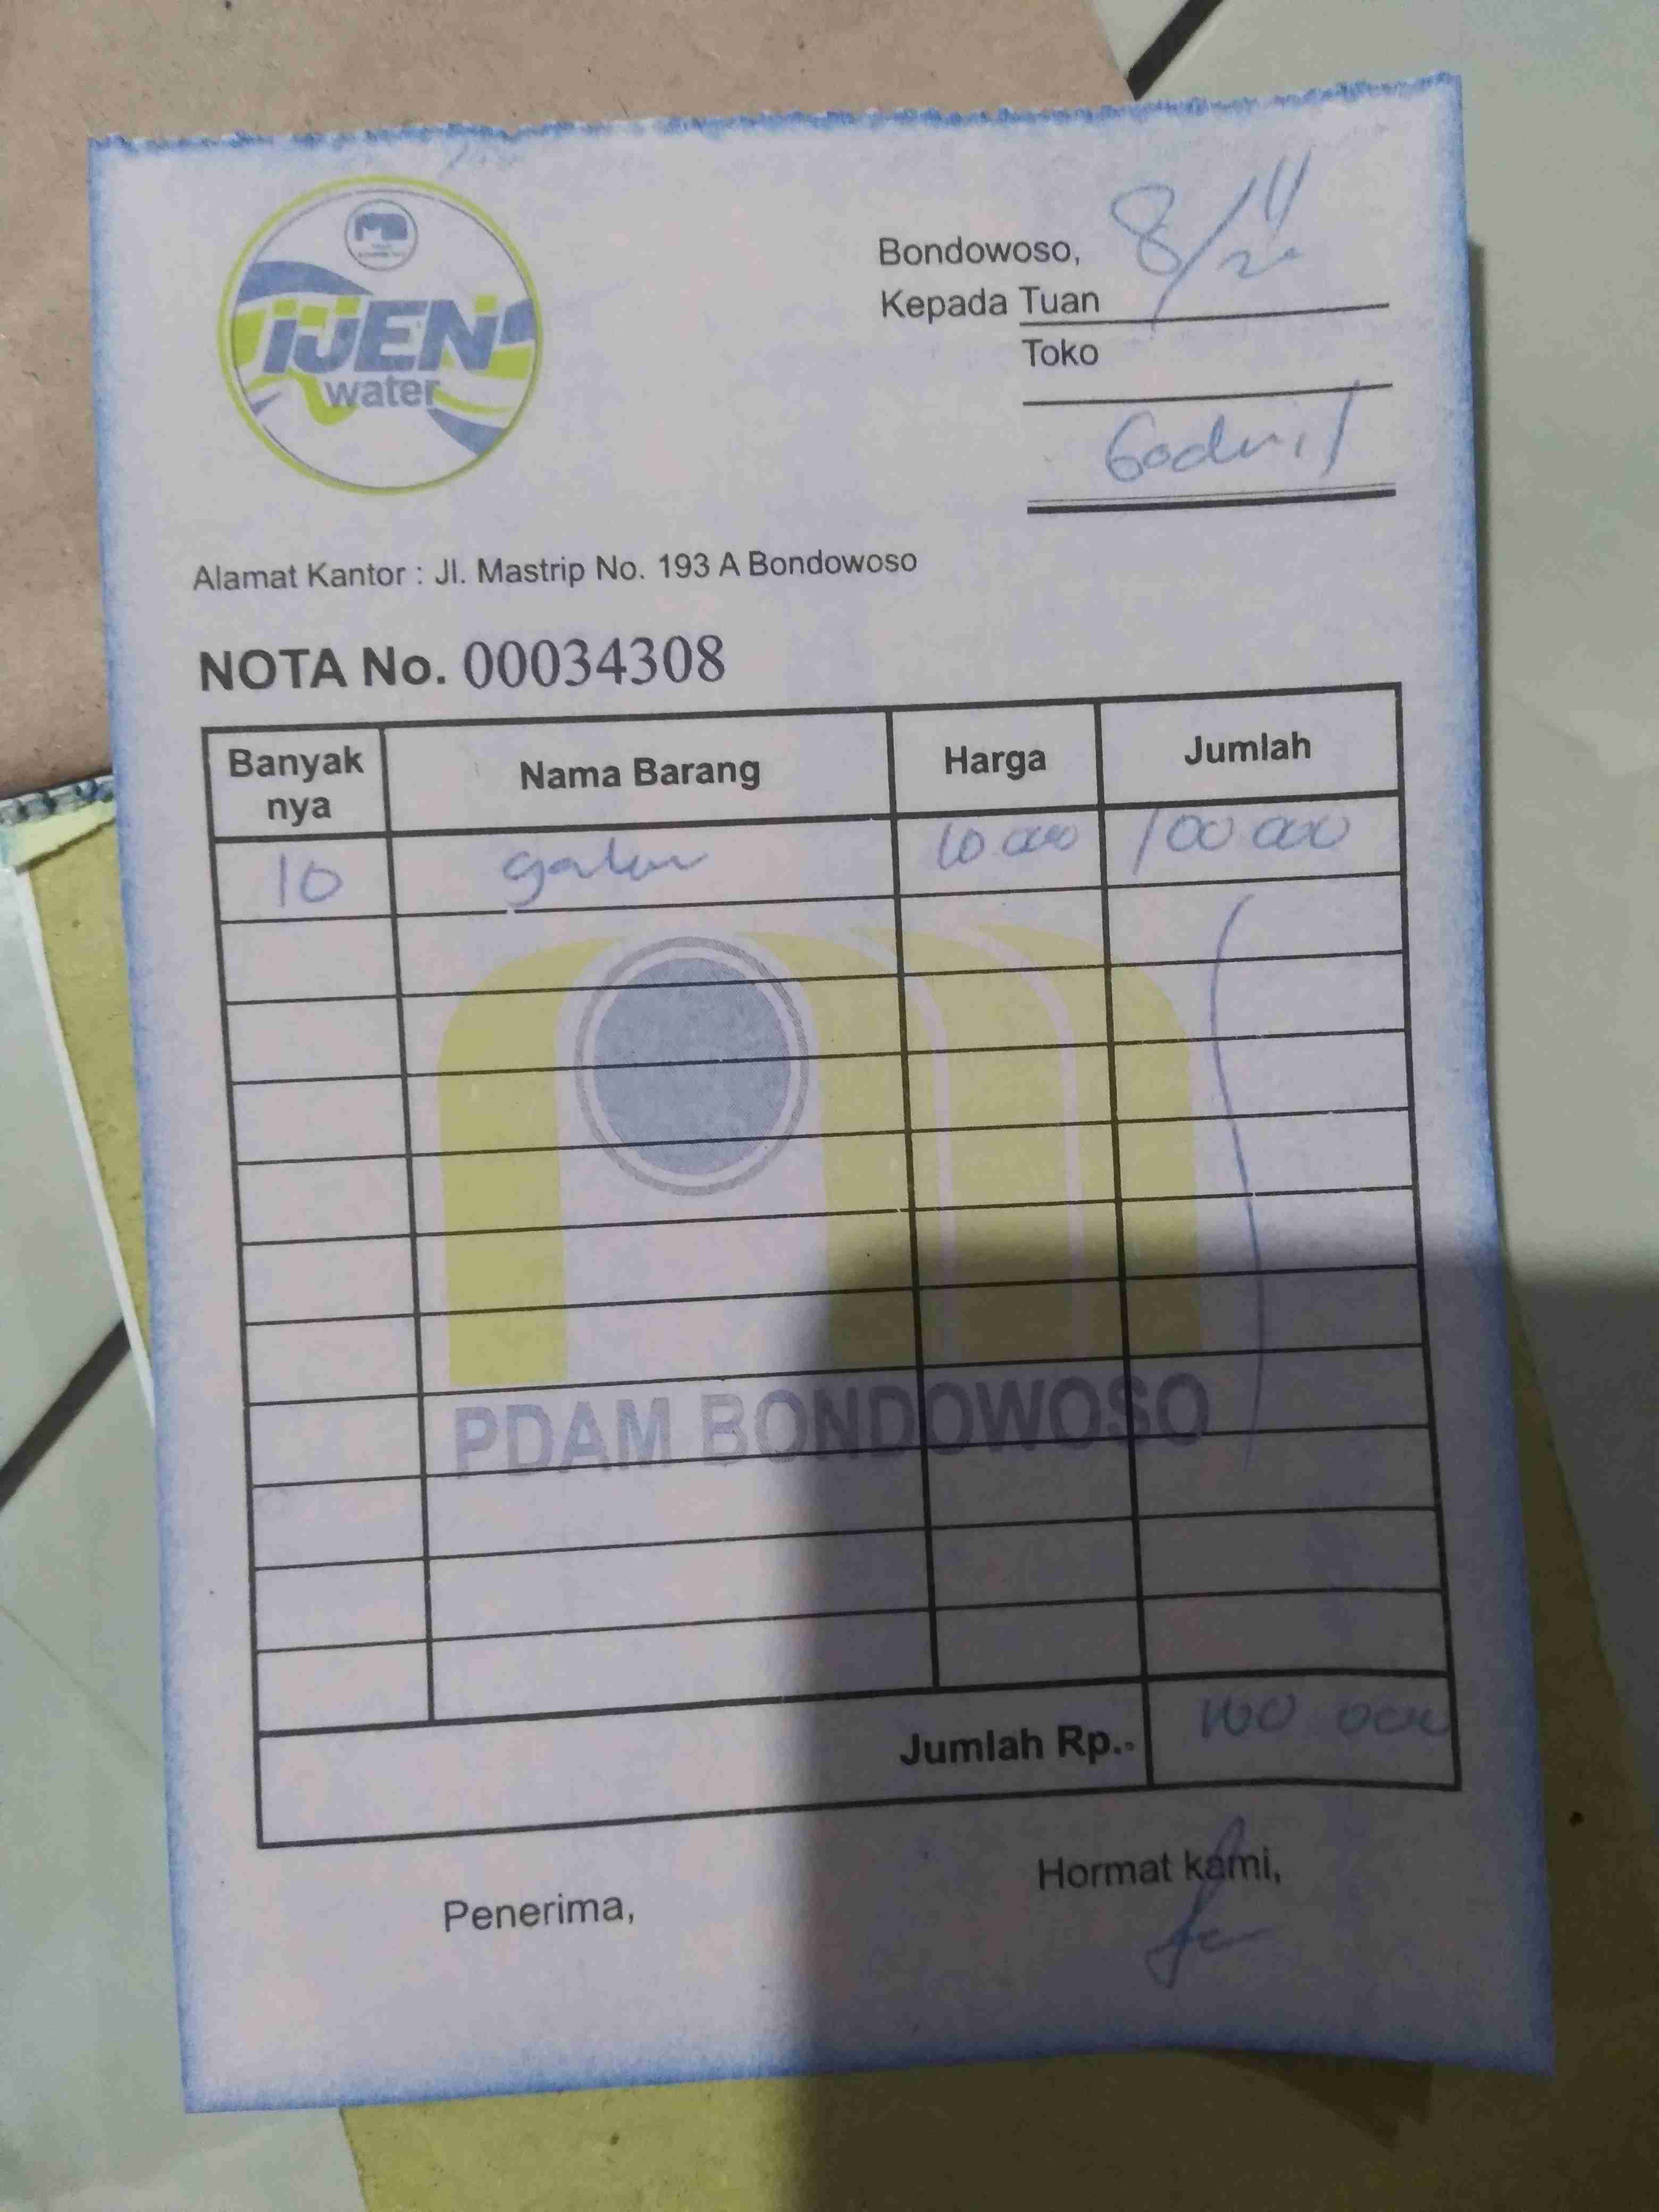 IJEN
water
Bondowoso, 8/11
Kepada Tuan
Toko
Alamat Kantor : Jl. Mastrip No. 193 A Bondowoso
NOTA No. 00034308
Banyak nya Nama Barang Harga Jumlah
10 galon 10 000 100 000
PDAM BONDOWOSO
Jumlah Rp.- 100 000
Penerima,
Hormat kami,